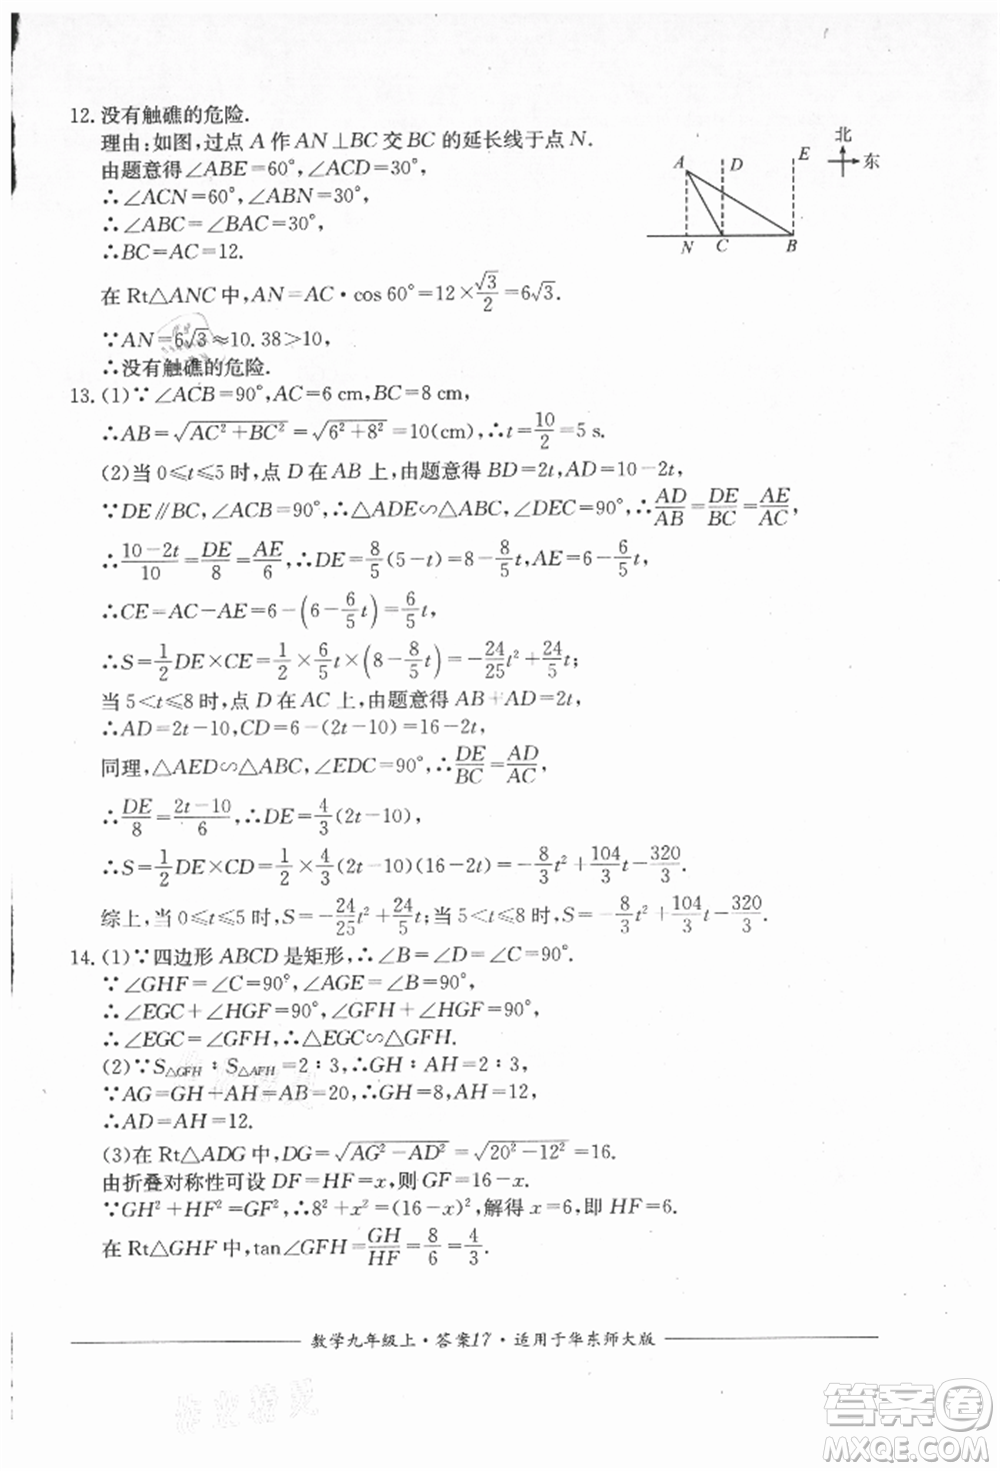 12. 没有触礁的危险.
理由:如图,过点 A 作 AN⊥BC 交 BC 的延长线于点 N.
由题意得∠ABE=60°,∠ACD=30°,
∴∠ACN=60°,∠ABN=30°,
∴∠ABC=∠BAC=30°,
∴BC=AC=12.
在 Rt△ANC 中,AN=AC·cos 60°=12×√3/2=6√3.
∵AN=6√3≈10.38>10,
∴没有触礁的危险.
北
东
A D E
N C B
13. (1)∵∠ACB=90°,AC=6 cm,BC=8 cm,
∴AB=√(AC²+BC²)=√(6²+8²)=10(cm),∴t=10/2=5 s.
(2)当 0≤t≤5 时,点 D 在 AB 上,由题意得 BD=2t,AD=10-2t,
∵DE∥BC,∠ACB=90°,∴△ADE∽△ABC,∠DEC=90°,∴AD/AB=DE/BC=AE/AC,
∴(10-2t)/10=DE/8=AE/6,∴DE=8/5(5-t)=8-8/5t,AE=6-6/5t,
∴CE=AC-AE=6-(6-6/5t)=6/5t,
∴S=1/2DE×CE=1/2×6/5t×(8-8/5t)=-24/25t²+24/5t;
当 5<t≤8 时,点 D 在 AC 上,由题意得 AB+AD=2t,
∴AD=2t-10,CD=6-(2t-10)=16-2t,
同理,△AED∽△ABC,∠EDC=90°,∴DE/BC=AD/AC,
∴DE/8=(2t-10)/6,∴DE=4/3(2t-10),
∴S=1/2DE×CD=1/2×4/3(2t-10)(16-2t)=-8/3t²+104/3t-320/3.
综上,当 0≤t≤5 时,S=-24/25t²+24/5t;当 5<t≤8 时,S=-8/3t²+104/3t-320/3.
14. (1)∵四边形 ABCD 是矩形,∴∠B=∠D=∠C=90°.
∵∠GHF=∠C=90°,∠AGE=∠B=90°,
∴∠EGC+∠HGF=90°,∠GFH+∠HGF=90°,
∴∠EGC=∠GFH,∴△EGC∽△GFH.
(2)∵S△GFH∶S△AFH=2∶3,∴GH∶AH=2∶3,
∵AG=GH+AH=AB=20,∴GH=8,AH=12,
∴AD=AH=12.
(3)在 Rt△ADG 中,DG=√(AG²-AD²)=√(20²-12²)=16.
由折叠对称性可设 DF=HF=x,则 GF=16-x.
∵GH²+HF²=GF²,∴8²+x²=(16-x)²,解得 x=6,即 HF=6.
在 Rt△GHF 中,tan∠GFH=GH/HF=8/6=4/3.
数学九年级上·答案17·适用于华东师大版
答案卷
MXQE.COM